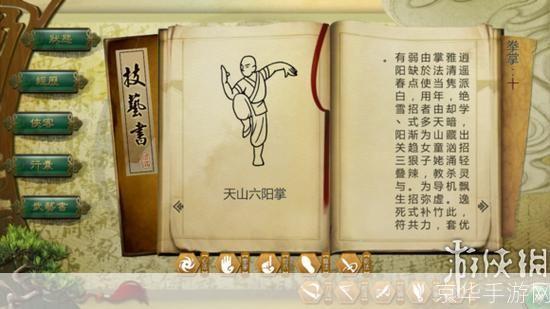 狀態
經歷
俠客
行囊
武藝書
技藝書
天山六阳掌
拳掌：十
逍遥派绝学，出招轻灵飘逸，优
雅清隽，却暗藏汹涌杀机。此套
掌法当年由天山童姥教导虚竹，
由於使用者多为女子，为弥补力
弱缺点，招式渐趋狠辣。招式共
有阳春白雪、阳关三叠与生死符
。
游侠網
京华手游网